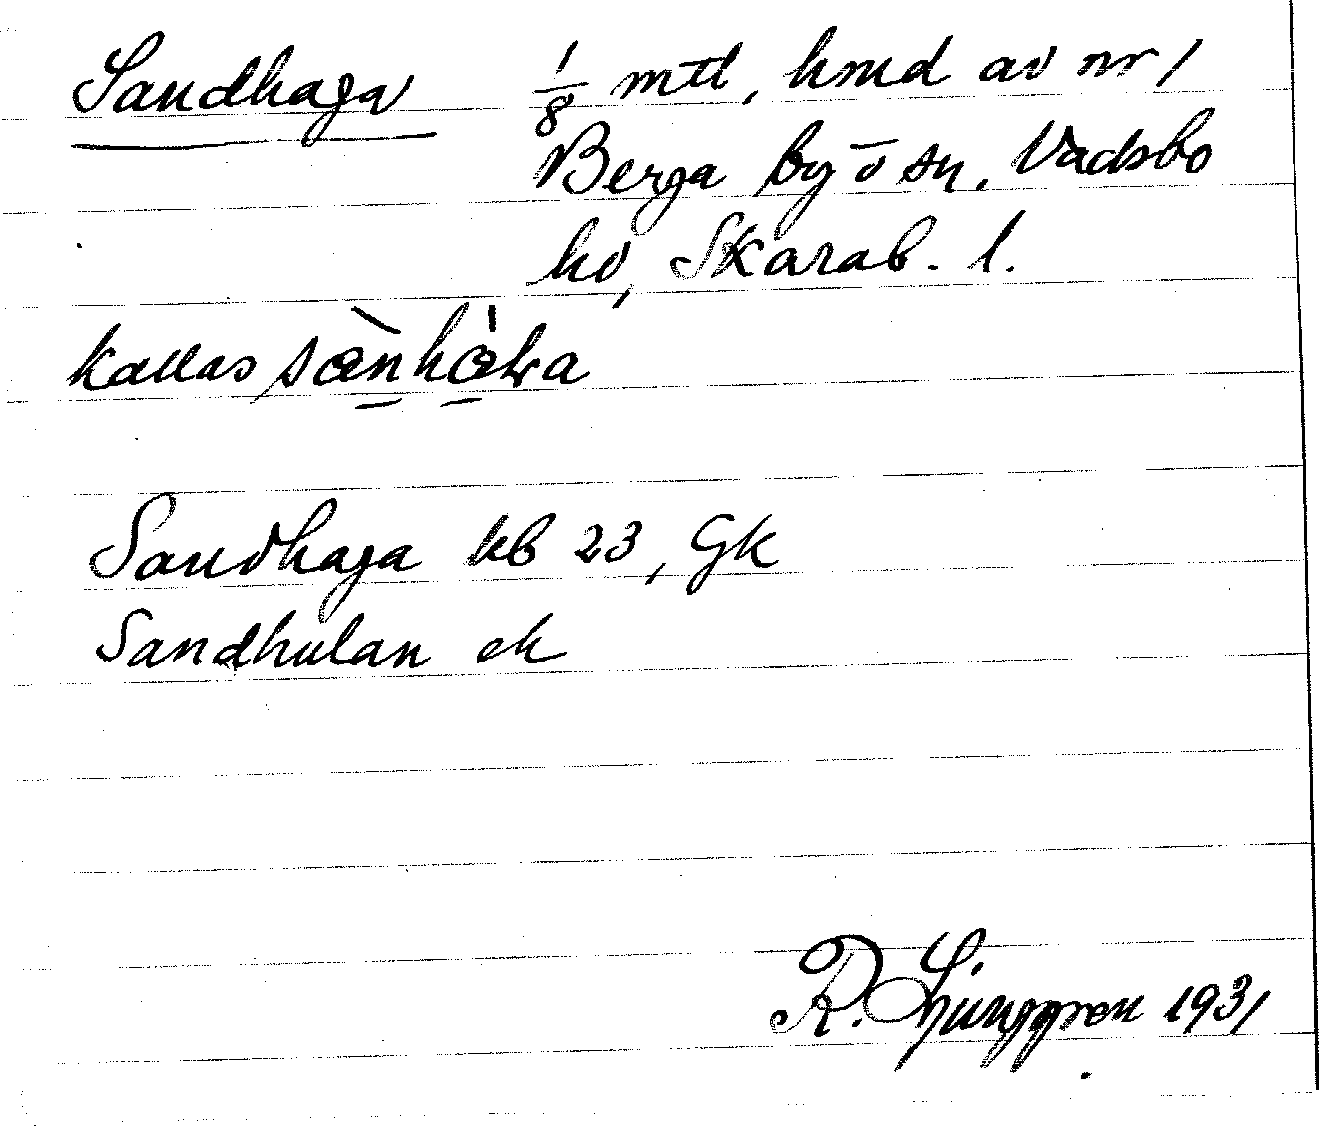 Sandhaga 1/8 mtl, hmd av nr 1
Berga by ö sn, Vadsbo
hd, Skarab. l.
kallas
Sandhaga kb 23, Gk
Sandhulan ek
R. Ljunggren 1931